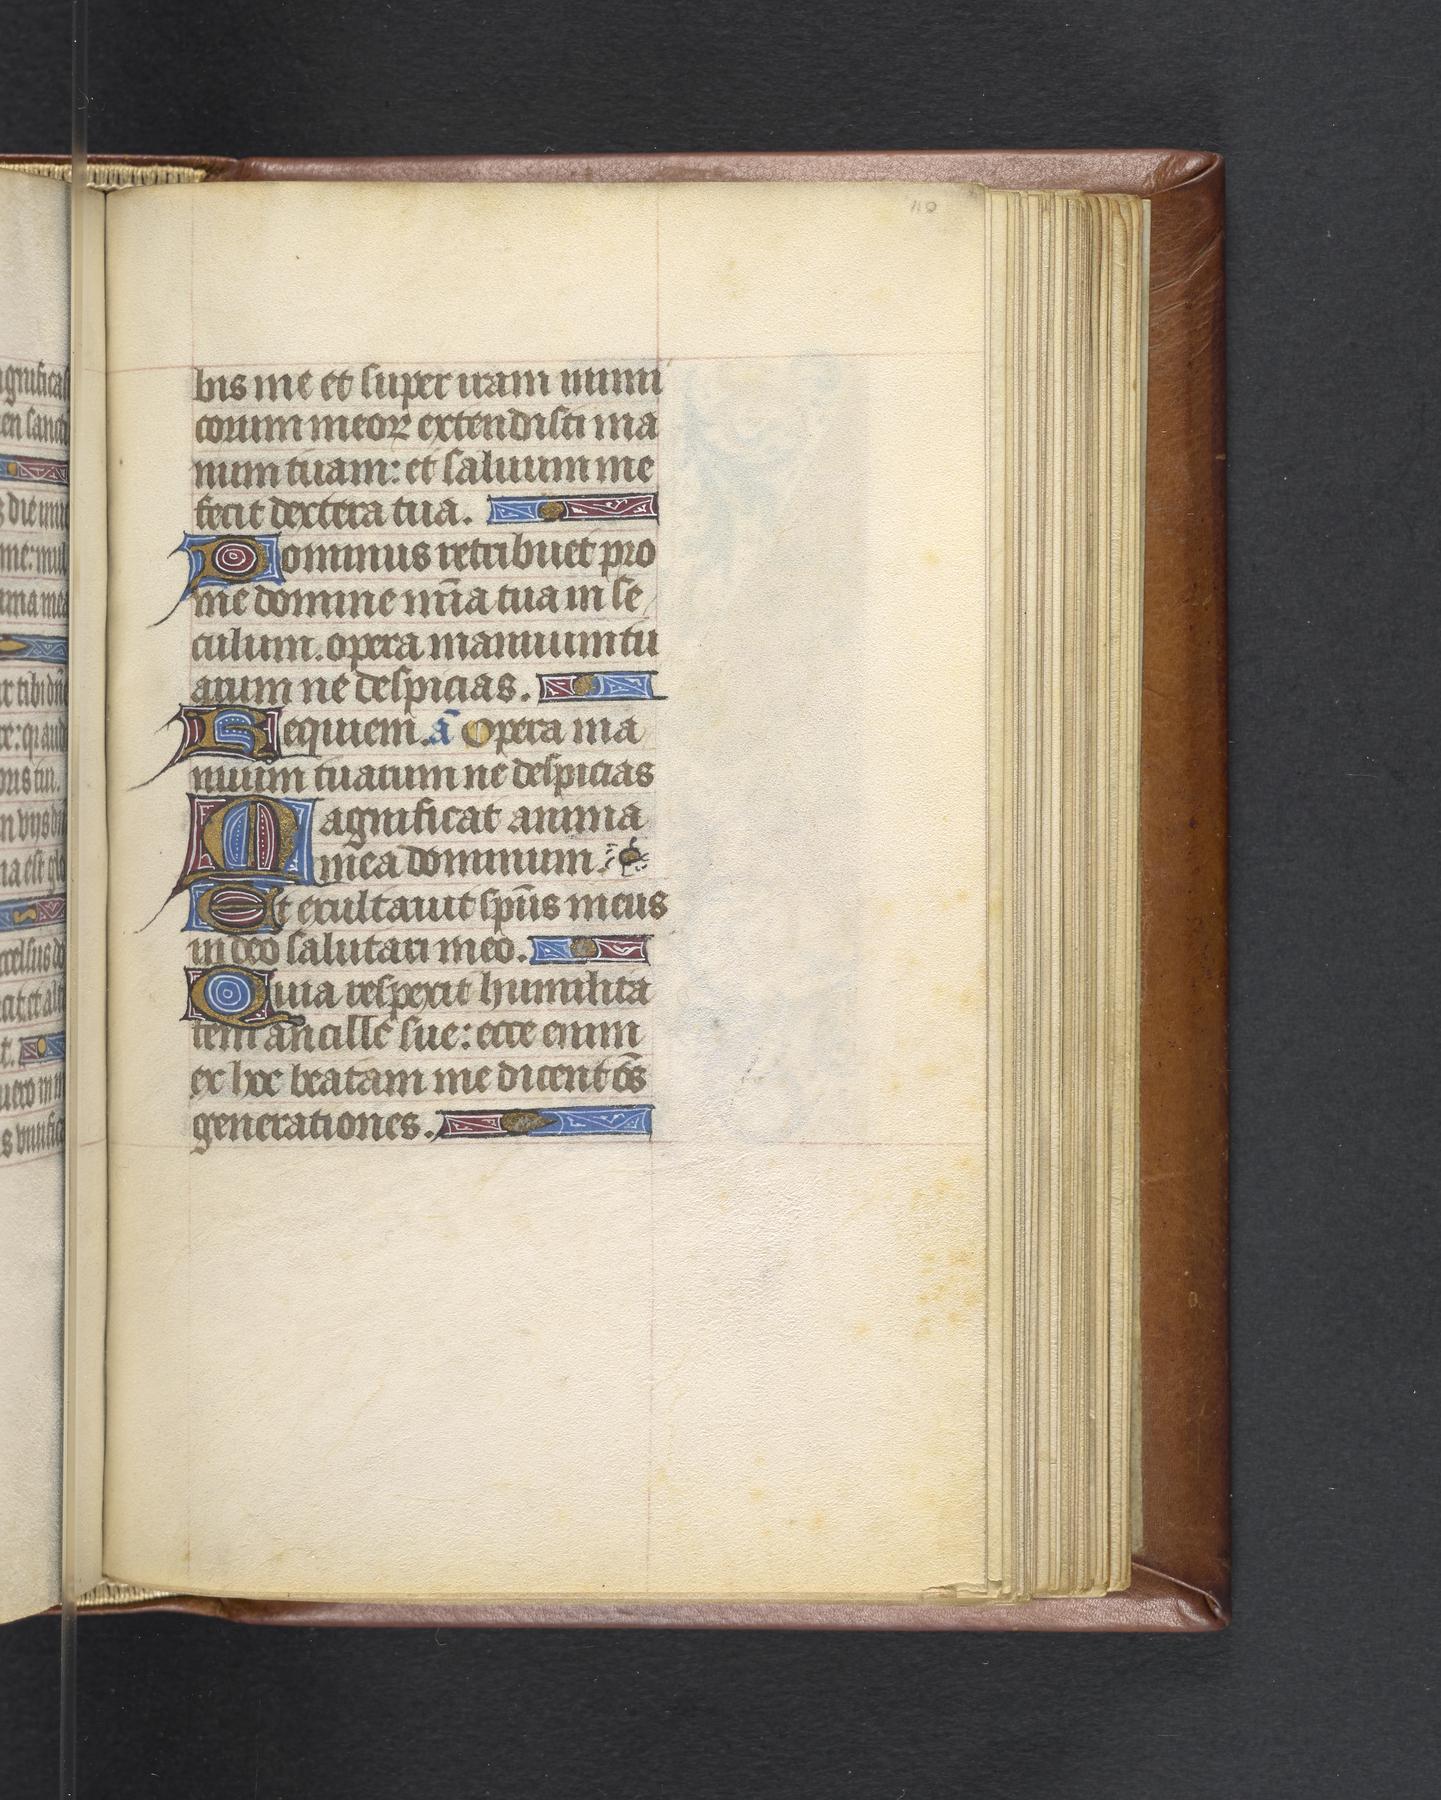 110
bis me et super iram inimi
corum meoꝝ extendisti ma
num tuam: et saluum me
fecit dextera tua.
Dominus retribuet pro
me domine mi̅a tua in se
culum. opera manuum tu
arum ne despicias.
Requiem. a̅ Opera ma
nuum tuarum ne despicias
Magnificat anima
mea dominum.
Et exultauit spu̅s meus
in deo salutari meo.
Quia respexit humilita
tem ancille sue: ecce enim
ex hoc beatam me dicent oe̅s
generationes.